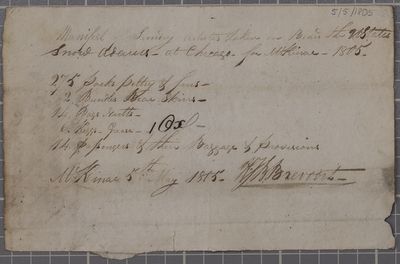 5/5/1805
Manifest of Sundry articles taken on Board the US
Snow Adams - at Chicago for McKinac - 1805.
275 Packs Peltry & furs -
2 Bundles Bear Skins -
14 Bags
6 Kegs
14 Passengers & their Baggage & Provisions
McKinac 5th May 1805 HB Brevoort -